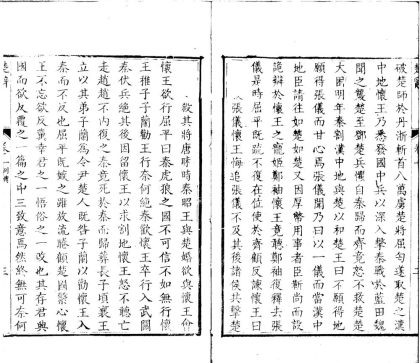 破楚師於丹淅斬首八萬虜楚將屈匄遂取楚之漢
中地懷王乃悉發國中兵以深入擊秦戰於藍田魏
聞之襲楚至鄧楚兵懼自秦歸而齊竟怒不救楚楚
大困明年秦割漢中地與楚以和楚王曰不願得地
願得張儀而甘心焉張儀聞乃曰以一儀而當漢中
地臣請往如楚如楚又因厚幣用事者臣靳尚而設
詭辯於懷王之寵姬鄭袖懷王竟聽鄭袖復釋去張
儀是時屈平既疏不復在位使於齊顧反諫懷王曰
張儀懷王悔追張儀不及其後諸侯共擊楚
殺其將唐昧時秦昭王與楚婚欲與懷王會
懷王欲行屈平曰秦虎狼之國不可信不如無行懷
王稚子子蘭勸王行奈何絕秦歡懷王卒行入武關
秦伏兵絕其後因留懷王以求割地懷王怒不聽亡
走趙趙不內復之秦竟死於秦而歸葬長子頃襄王
立以其弟子蘭為令尹楚人既咎子蘭以勸懷王入
秦而不反也屈平既嫉之雖放流睠顧楚國繫心懷
王不忘欲反冀幸君之一悟俗之一改也其存君興
國而欲反覆之一篇之中三致意焉然終無可奈何